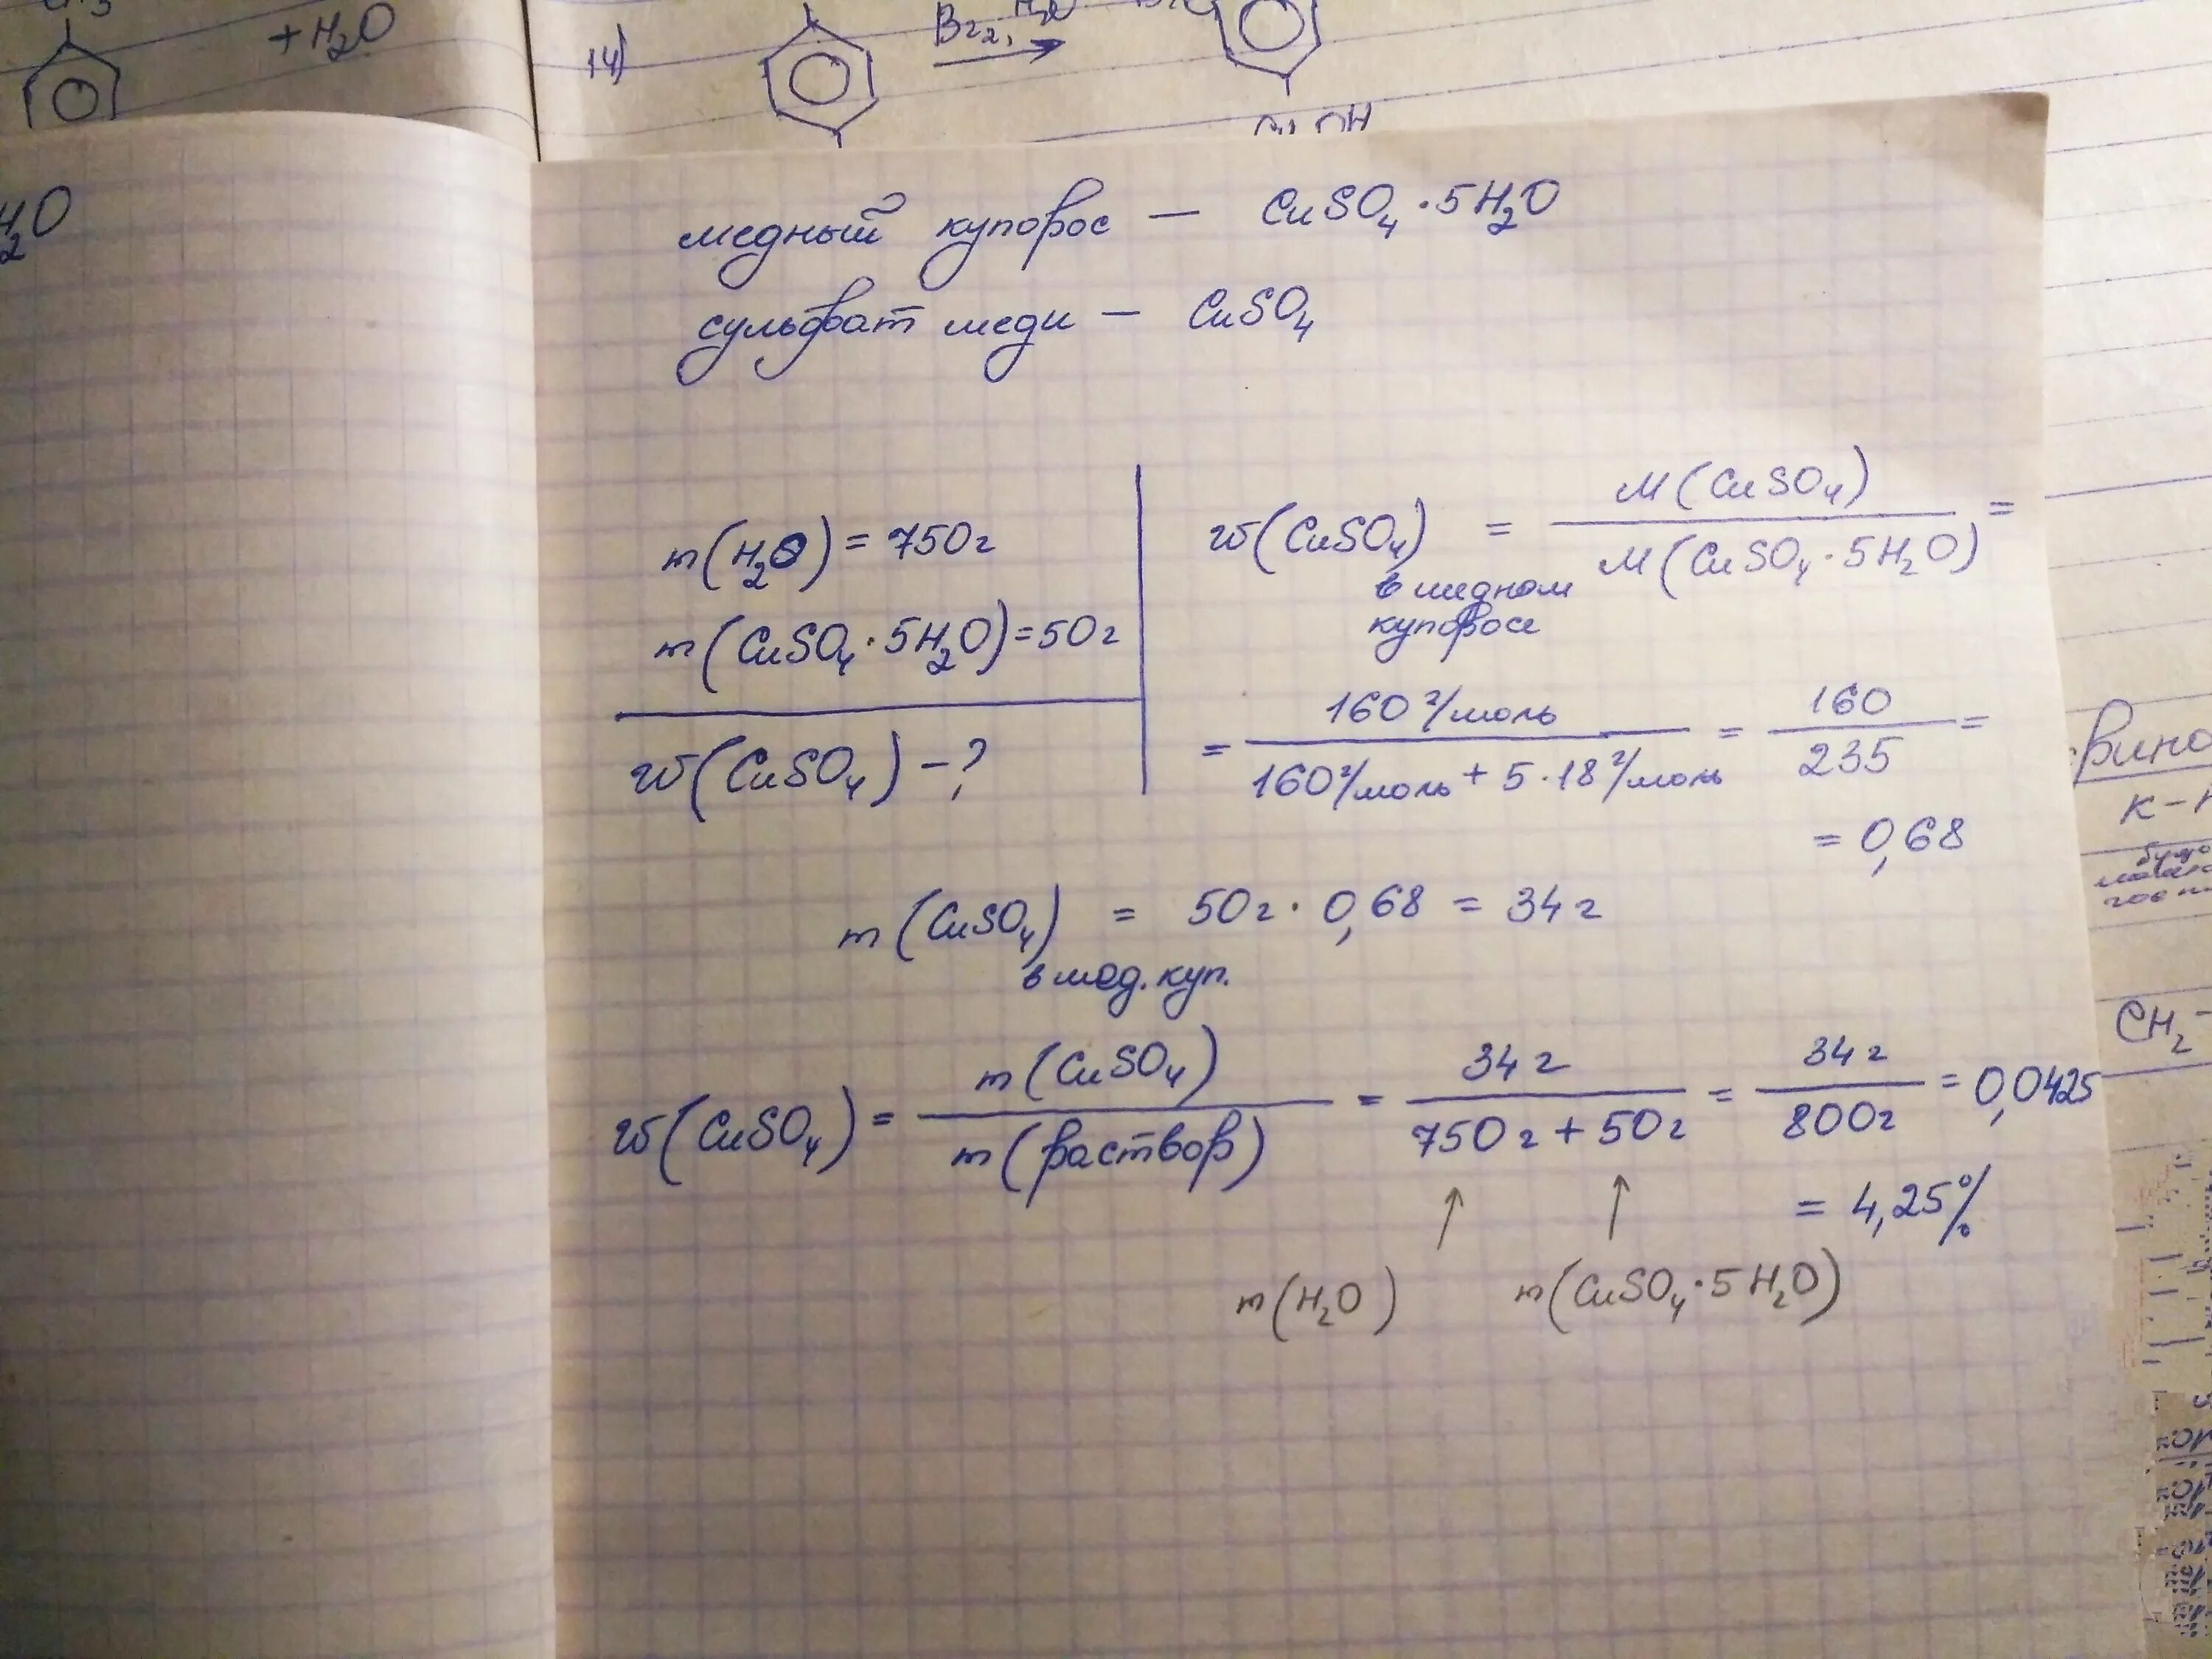 +H₂O
14)
Br₂,
H₂O
медный купорос — CuSO₄·5H₂O
сульфат меди — CuSO₄
m(H₂O) = 750г
m(CuSO₄·5H₂O)=50г
w(CuSO₄) -?
w(CuSO₄) в медном купоросе = M(CuSO₄) / M(CuSO₄·5H₂O) =
= 160 г/моль / 160г/моль + 5·18 г/моль = 160 / 235 =
= 0,68
m(CuSO₄) в мед. куп. = 50г · 0,68 = 34г
w(CuSO₄) = m(CuSO₄) / m(раствор) = 34г / 750г + 50г = 34г / 800г = 0,0425
= 4,25%
↑ ↑
m(H₂O) m(CuSO₄·5H₂O)
CH₂-